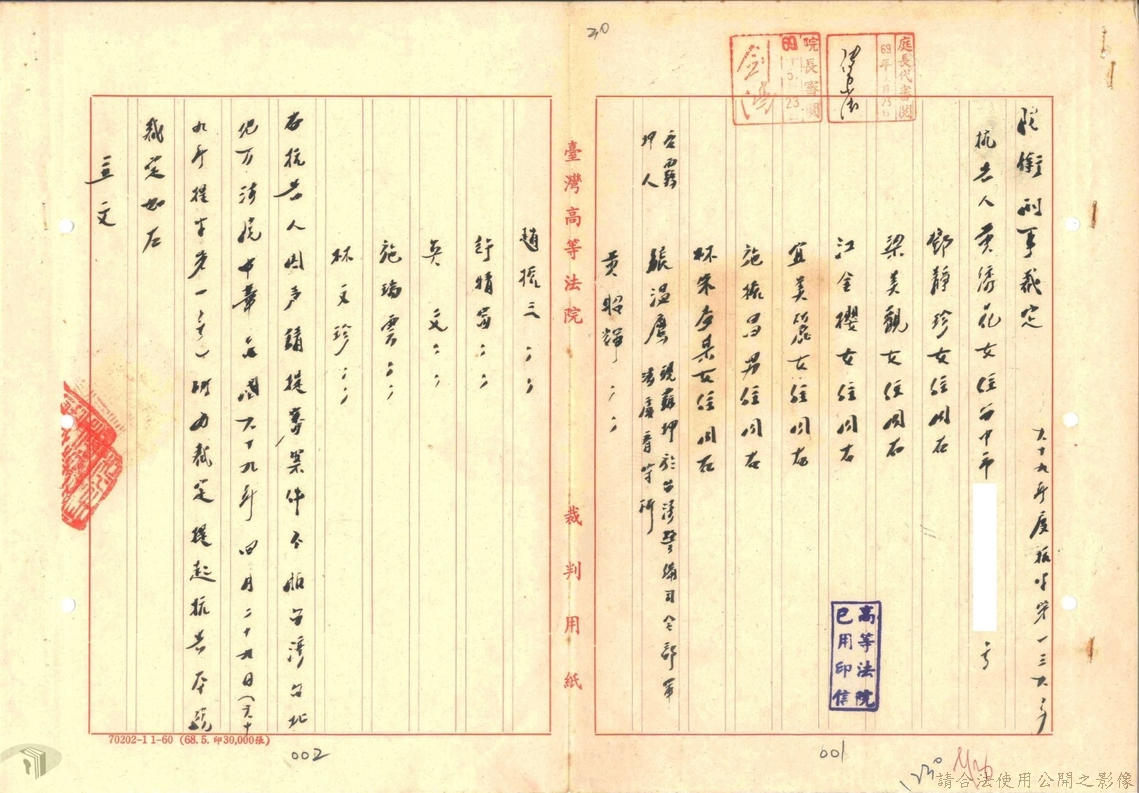 20
院長審閱
69
5.
23
庭長代審閱
69年 月 日
院銜刑事裁定
六十九年度抗字第一三六號
抗告人黃漆花女住台中市 號
鄧靜珍女住同右
梁美觀女住同右
江金櫻女住同右
宜美崑女住同右
施振昌男住同右
林朱 某女住同右
右羈押人
張溫鷹 現羈押於台灣警備司令部軍法處看守所
黃昭輝 〃 〃
臺灣高等法院 裁判用紙
趙振三 〃 〃
許晴富 〃 〃
吳文 〃 〃
施瑞雲 〃 〃
林文珍 〃 〃
右抗告人因聲請提審案件不服台灣台北
地方法院中華民國六十九年四月二十九日(六十
九年提字第一 號)所為裁定提起抗告本院
裁定如左
主文
高等法院已用印信
70202-11-60 (68.5.印30,000張)
002
001
請合法使用公開之影像